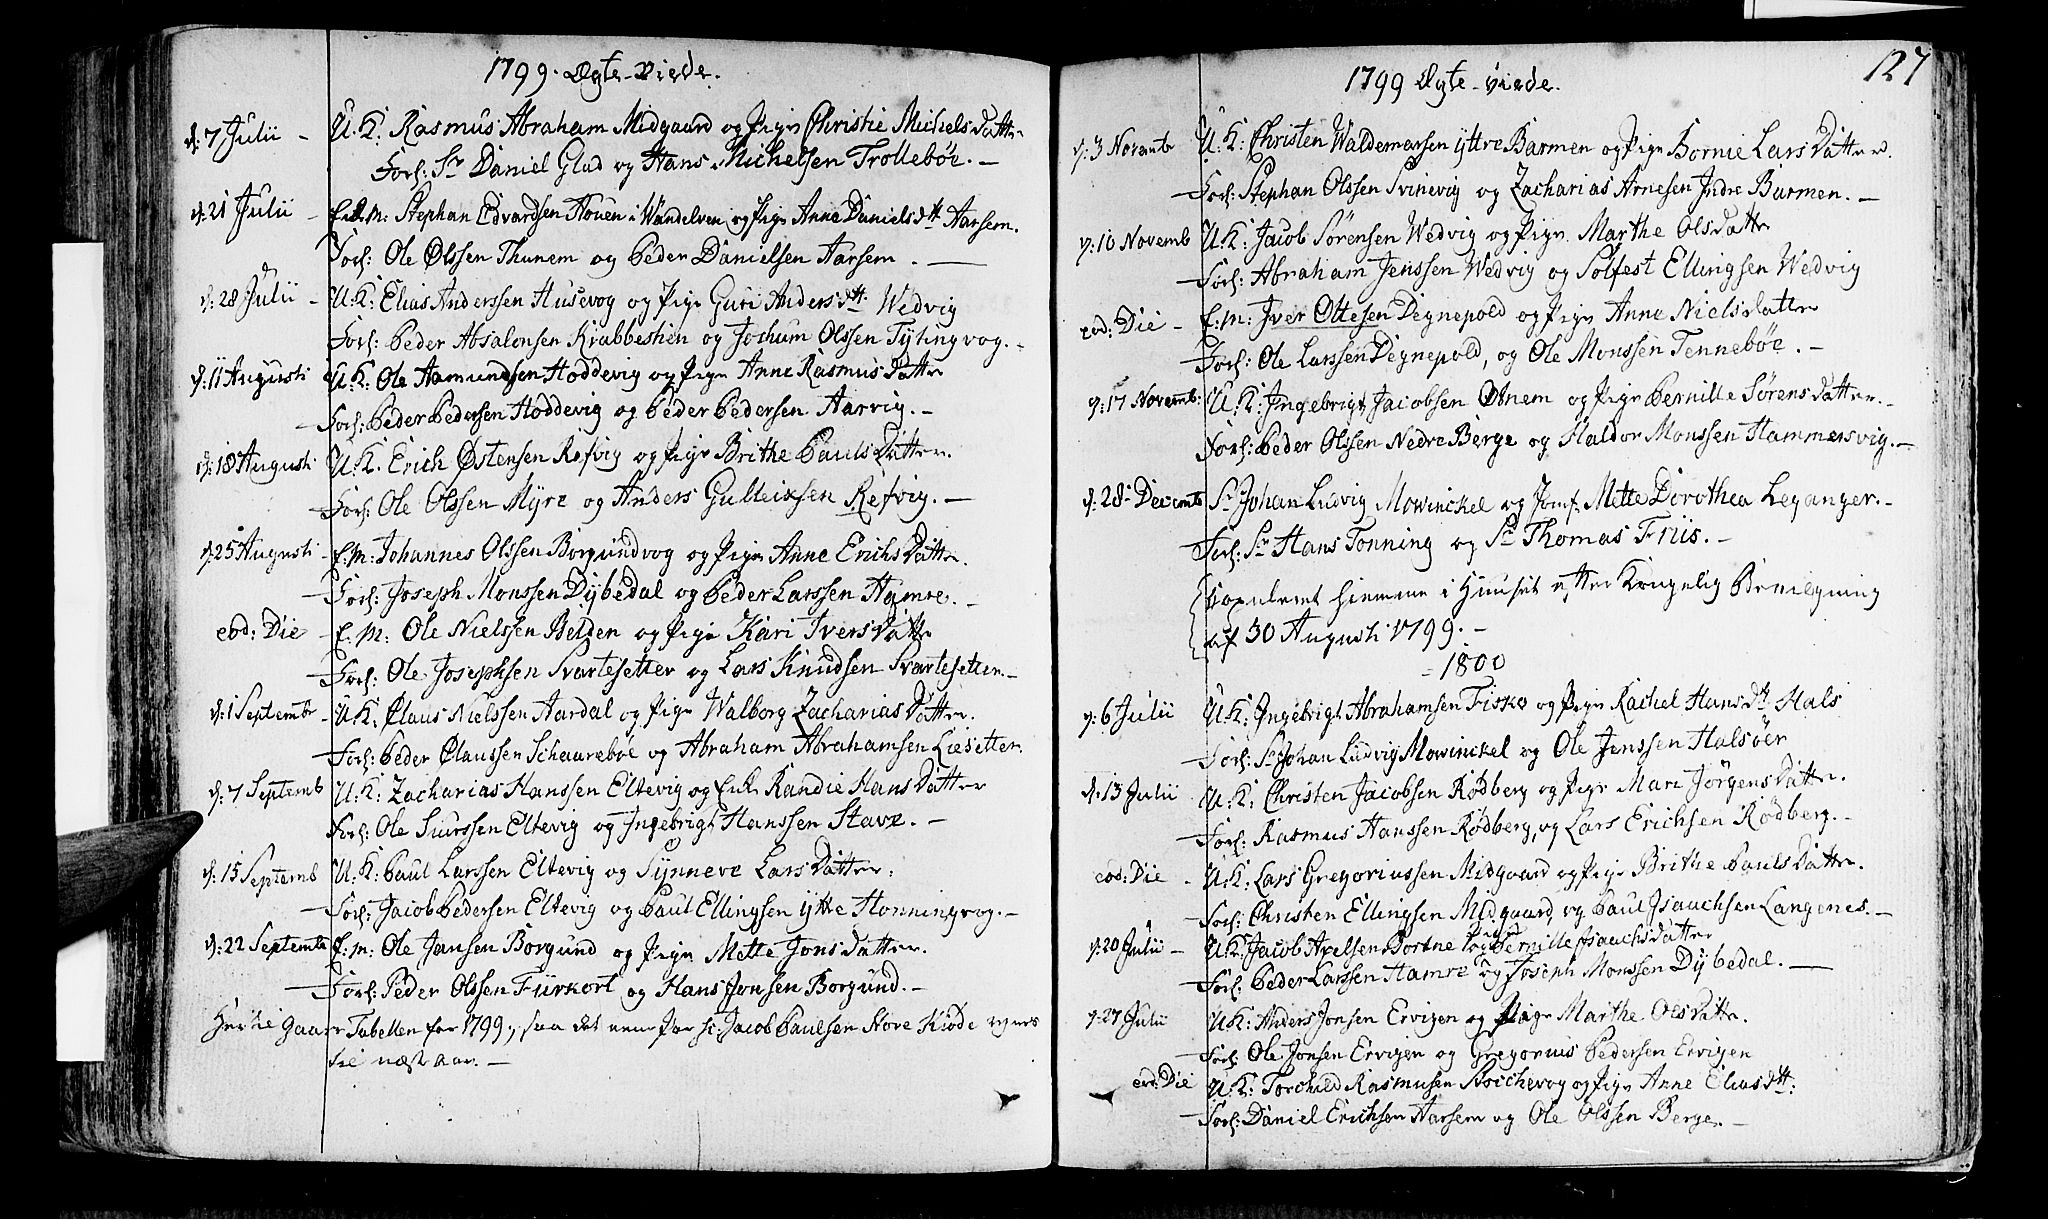 1799. Ægte-Viede.
d: 7 Julii - U.K. Rasmus Abraham Midgaard og Pige Christie Michels Datter
Forl: Sr Daniel Glad og Hans Michelsen Trollebøe. -
d: 21 Julii - Enk.M: Stephan Edvardsen Houen i Wandelven og Pige Anne Daniels dtt Aarsem.
Forl: Ole Olssen Thunem og Peder Danielsen Aarsem. -
d: 28 Julii - U.K: Elias Anderssen Husevog og Pige Guri Anders dtt: Wedvig
Forl: Peder Absalonsen Krabbestien og Jochum Olssen Tytingvog. -
d: 11 Augusti U.K: Ole Aamundsen Hoddevig og Pige Anne Rasmus Datter
- Forl: Peder Pedersen Hoddevig og Peder Pedersen Aarvig. -
d: 18 Augusti U.K. Erich Østensen Refvig og Pige Brithe Pauls Datter.
Forl: Ole Olssen Myre og Anders Gulleixsen Refvig. -
d: 25 Augusti - E.M: Johannes Olssen Borgundvog og Pige Anne Erichs Datter.
Forl: Joseph Monssen Dybedal og Peder Larssen Hamre. -
eod: Die - E.M: Ole Nielssen Belden og Pige Kari Ivers Datter
Forl: Ole Josephsen Svartesetter og Lars Knudsen Svartesetter. -
d: 1 Septembr - U.K: Claus Nielssen Aardal og Pige Walborg Zacharias Datter.
Forl: Peder Claussen Schaarebøe og Abraham Abrahamsen Liesetter.
d: 7 Septemb U.K: Zacharias Hanssen Eltevig og Enk: Randie Hans Datter
Forl: Ole Siurssen Eltevig og Ingebrigt Hanssen Stave. -
d: 15 Septemb U.K: Paul Larssen Eltevig og Synneve Lars Datter:
- Forl: Jacob Pedersen Eltevig og Paul Ellingsen ytte Honningvog. -
d: 22 Septembr E.M: Ole Jansen Borgund og Pige Mette Jons Datter.
Forl: Peder Olssen Furkort og Hans Jonsen Borgund. -
Her til gaar Tabellen for 1799, saa det eene Par sc: Jacob Paulsen Hove Kiøde
til næst Aar. -
127
1799 Ægte-Viede.
d: 3 Novembr U.K: Christen Waldemarsen yttre Barmen og Pige Bornie Lars Datter.
- Forl: Stephan Olssen Svinevig og Zacharias Arnesen Indre Barmen. -
d: 10 Novemb U.K: Jacob Sørensen Wedvig og Pige Marthe Ols Datter
- Forl: Abraham Jenssen Wedvig og Solfest Ellingsen Wedvig
eod: Die - E.M: Iver Ottesen Degnepold og Pige Anne Niels Datter
- Forl: Ole Larssen Degnepold, og Ole Monssen Tennebøe. -
d: 17 Novemb: U.K: Ingebrigt Jacobsen Otnem og Pige Pernille Sørens Datter. -
Forl: Peder Olssen Nedre Berge og Haldor Monssen Hammersvig. -
d: 28 Decemb Sr Johan Ludvig Mowinckel og Jomf: Mette Dorothea Leganger. -
Forl: Sr Hans Tonning og Sr Thomas Friis. -
Copuleret hiemme i Huuset efter Kongelig Bevilgning
af 30 Augusti 1799. -
- 1800
d: 6 Julii U.K: Ingebrigt Abrahamsen Fiskø og Pige Rachel Hans dtr Hals
Forl: Sr Johan Ludvig Mowinckel og Ole Jenssen Halsøer
d: 13 Julii U.K: Christen Jacobsen Rødberg og Pige Mari Jørgens Datter.
Forl: Rasmus Hanssen Rødberg, og Lars Erichsen Rødberg. -
eod: Die - U.K: Lars Gregoriussen Midgaard og Pige Brithe Pauls Datter.
Forl: Christen Ellingsen Midgaard og Paul Isaachsen Langenes. -
d: 20 Julii - U.K: Jacob Axelsen Bortne og Pige Pernille Isaachs datter
Forl: Peder Larssen Hamre og Joseph Monssen Dybedal. -
d: 27 Julii U.K: Anders Jonsen Ervigen og Pige Marthe Ols Datter.
- Forl: Ole Jonsen Ervigen og Gregorius Pedersen Ervigen
eod: Die U.K: Torchild Rasmusen Boichevog og Pige Anne Elias dtt:
- Forl: Daniel Erichsen Aarsem og Ole Olssen Berge. -